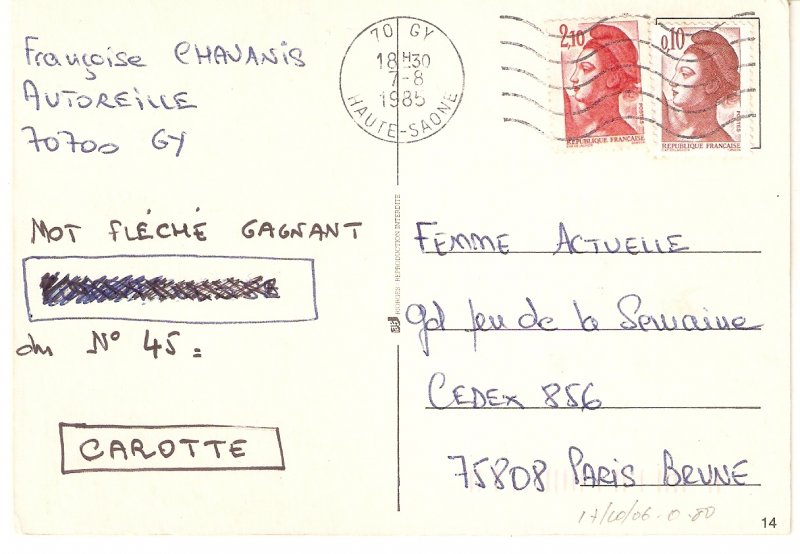 Françoise CHAVANIS
AUTOREILLE
70700 GY
70 GY
18H30
7-8
1985
HAUTE-SAONE
2,10
POSTES
REPUBLIQUE FRANÇAISE
0,10
POSTES
REPUBLIQUE FRANÇAISE
MOT FLÉCHÉ GAGNANT
du N° 45 =
CAROTTE
REPRODUCTION INTERDITE
FEMME ACTUELLE
gd jeu de la Semaine
CEDEX 856
75808 PARIS BRUNE
17/10/06 0.80
14